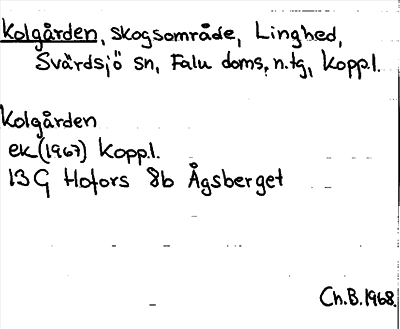 Kolgården, skogsområde, Linghed,
Svärdsjö sn, Falu doms. n.tg, Koppl.
Kolgården
ek (1967) Koppl.
13G Hofors 8b Ågsberget
Ch.B. 1968.